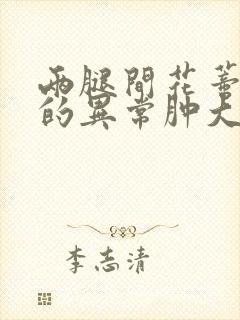 两腿間花蒂
的異常肿大
李志清